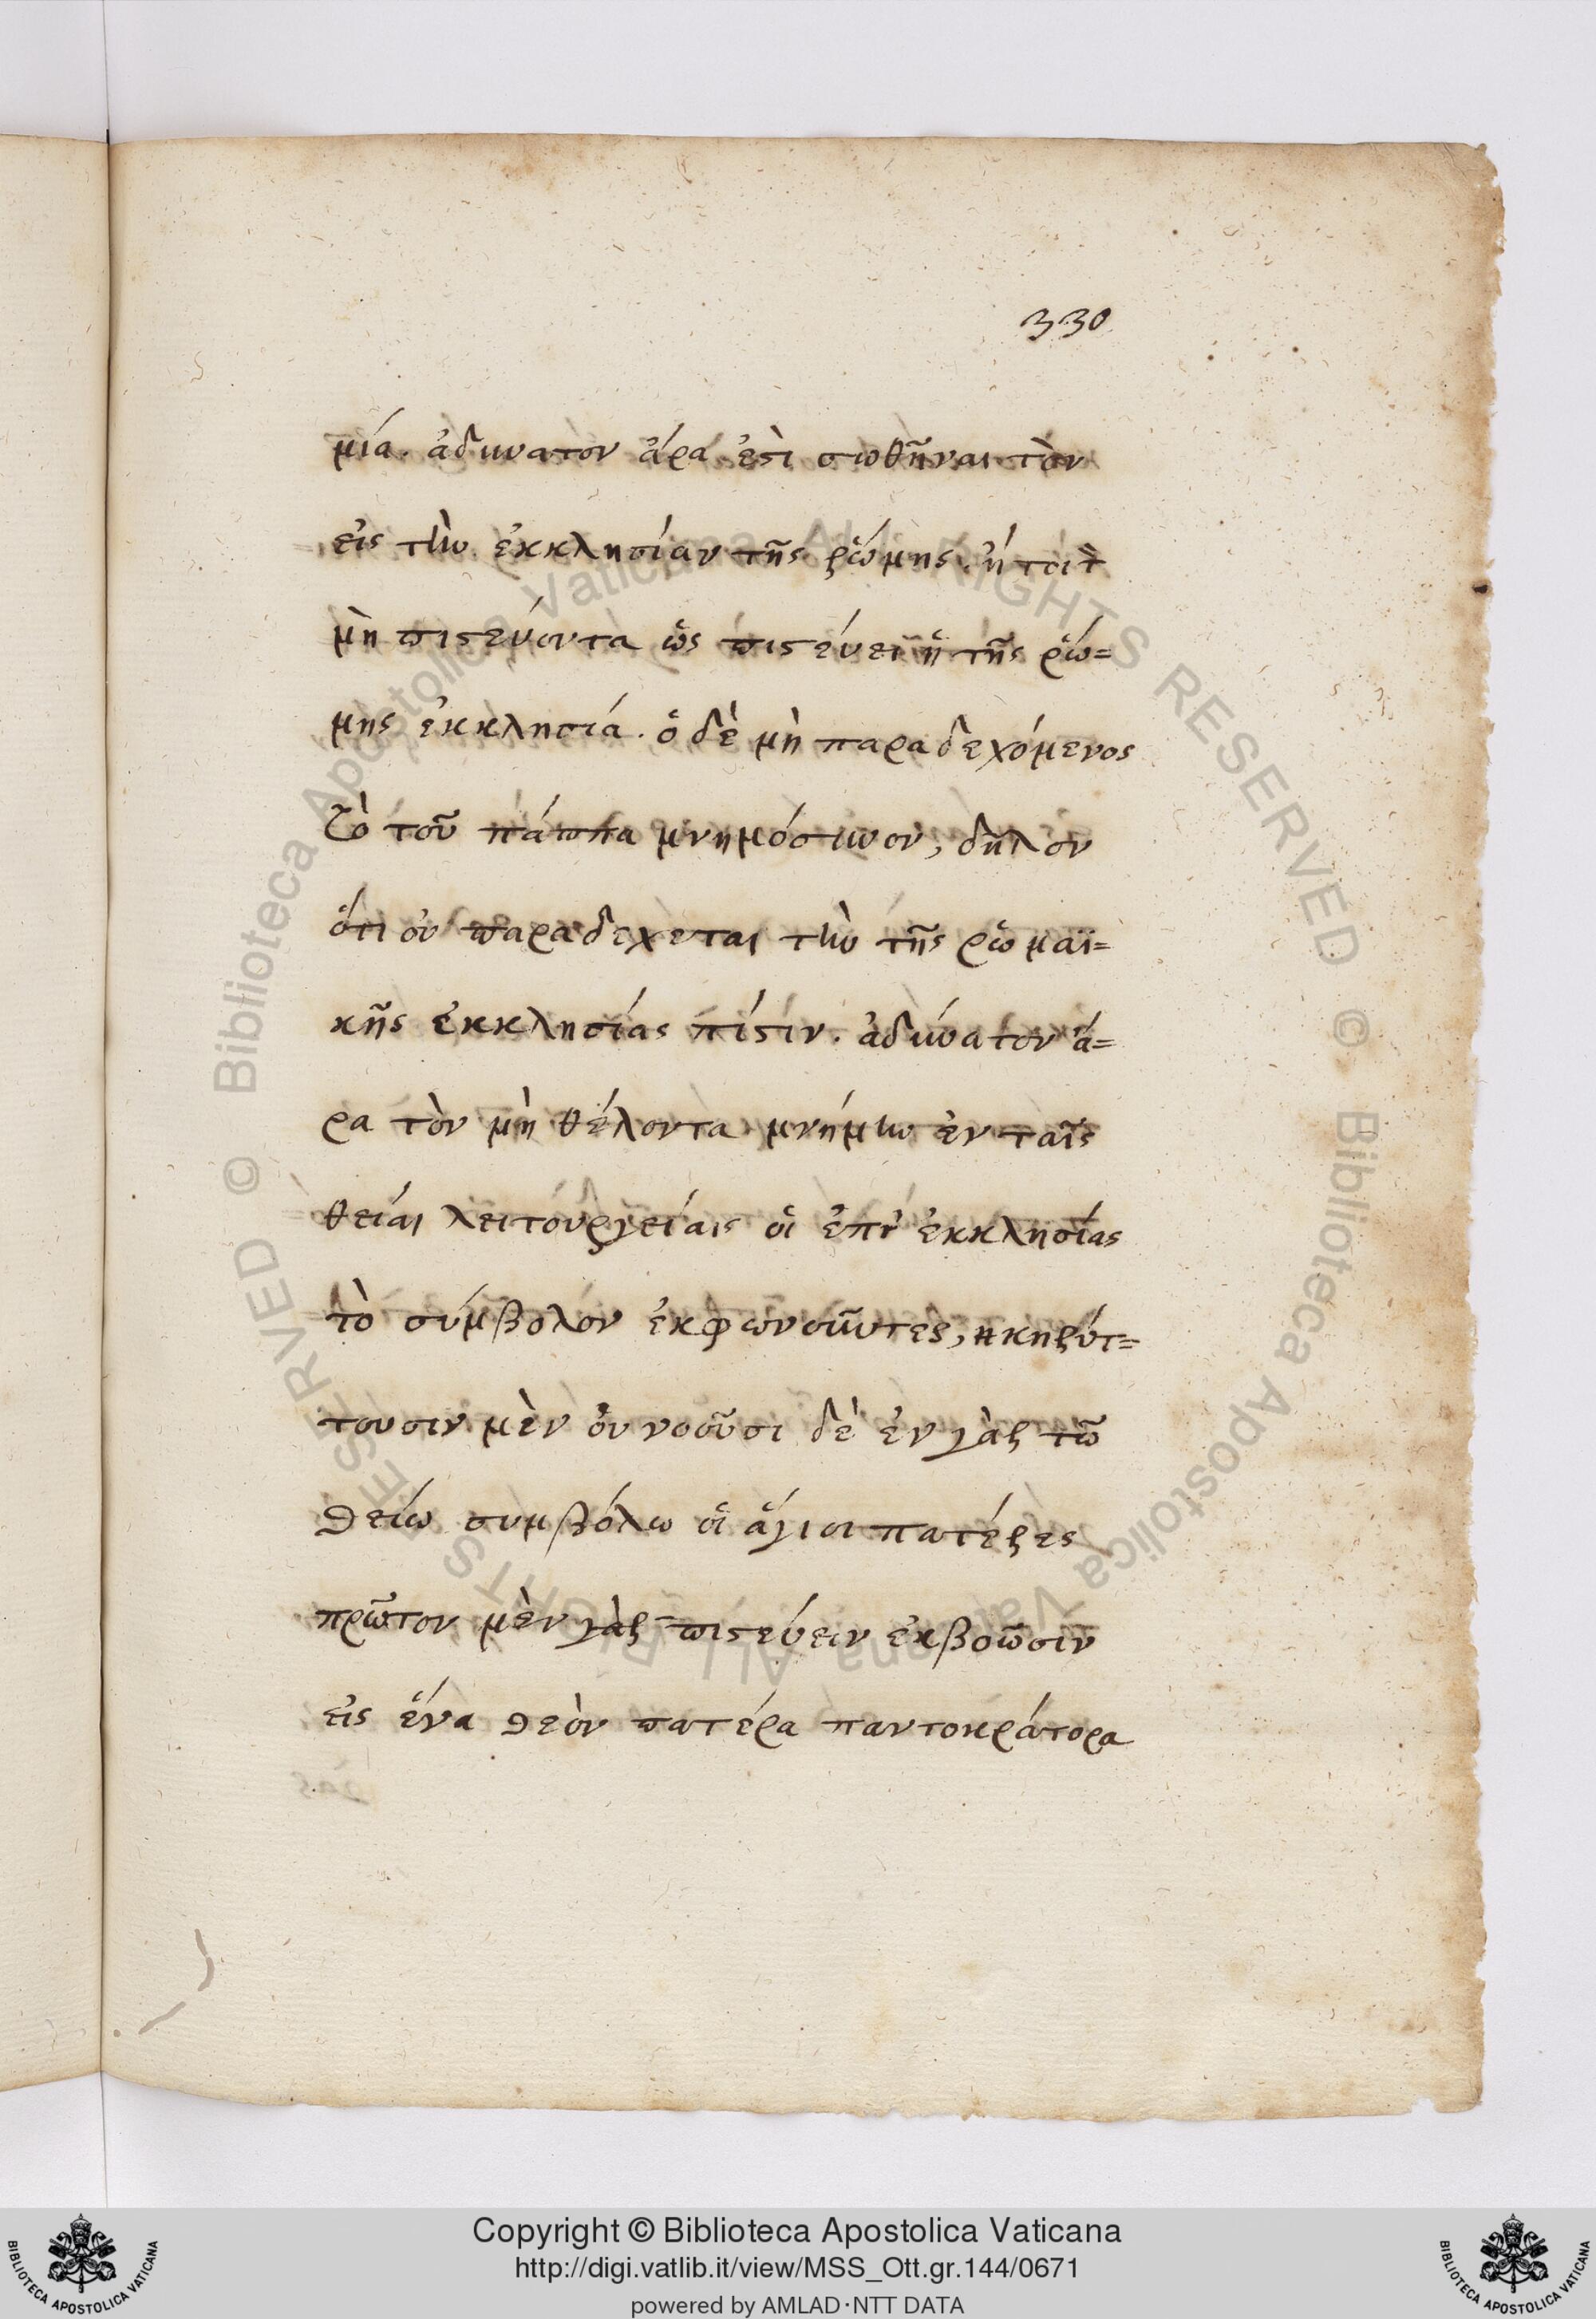 330
μία. ἀδύνατον ἄρα ἐστὶ σωθῆναι τὸν
εἰς τὴν ἐκκλησίαν τῆς ῥώμης. ἤτοι τὸν
μὴ πιστεύοντα ὡς πιστεύει ἡ τῆς ῥώ=
μης ἐκκλησιά. ὁ δὲ μὴ παραδεχόμενος
τὸ τοῦ πάππα μνημόσυνον, δῆλον
ὅτι οὐ παραδέχεται τὴν τῆς ῥωμαϊ=
κῆς ἐκκλησίας πίστιν. ἀδύνατον ἄ=
ρα τὸν μὴ θέλοντα μνήμην ἐν ταῖς
θείαι λειτουργείαις οἱ ἐπ' ἐκκλησίας
τὸ σύμβολον ἐκφωνοῦντες, κηρύτ=
τουσιν μὲν οὐ νοοῦσι δὲ ἐν γὰρ τῶ
θείω συμβόλω οἱ ἅγιοι πατέρες
πρῶτον μὲν γὰρ πιστεύειν ἐκβοῶσιν
εἰς ἕνα θεὸν πατέρα παντοκράτορα
Copyright © Biblioteca Apostolica Vaticana
http://digi.vatlib.it/view/MSS_Ott.gr.144/0671
powered by AMLAD·NTT DATA